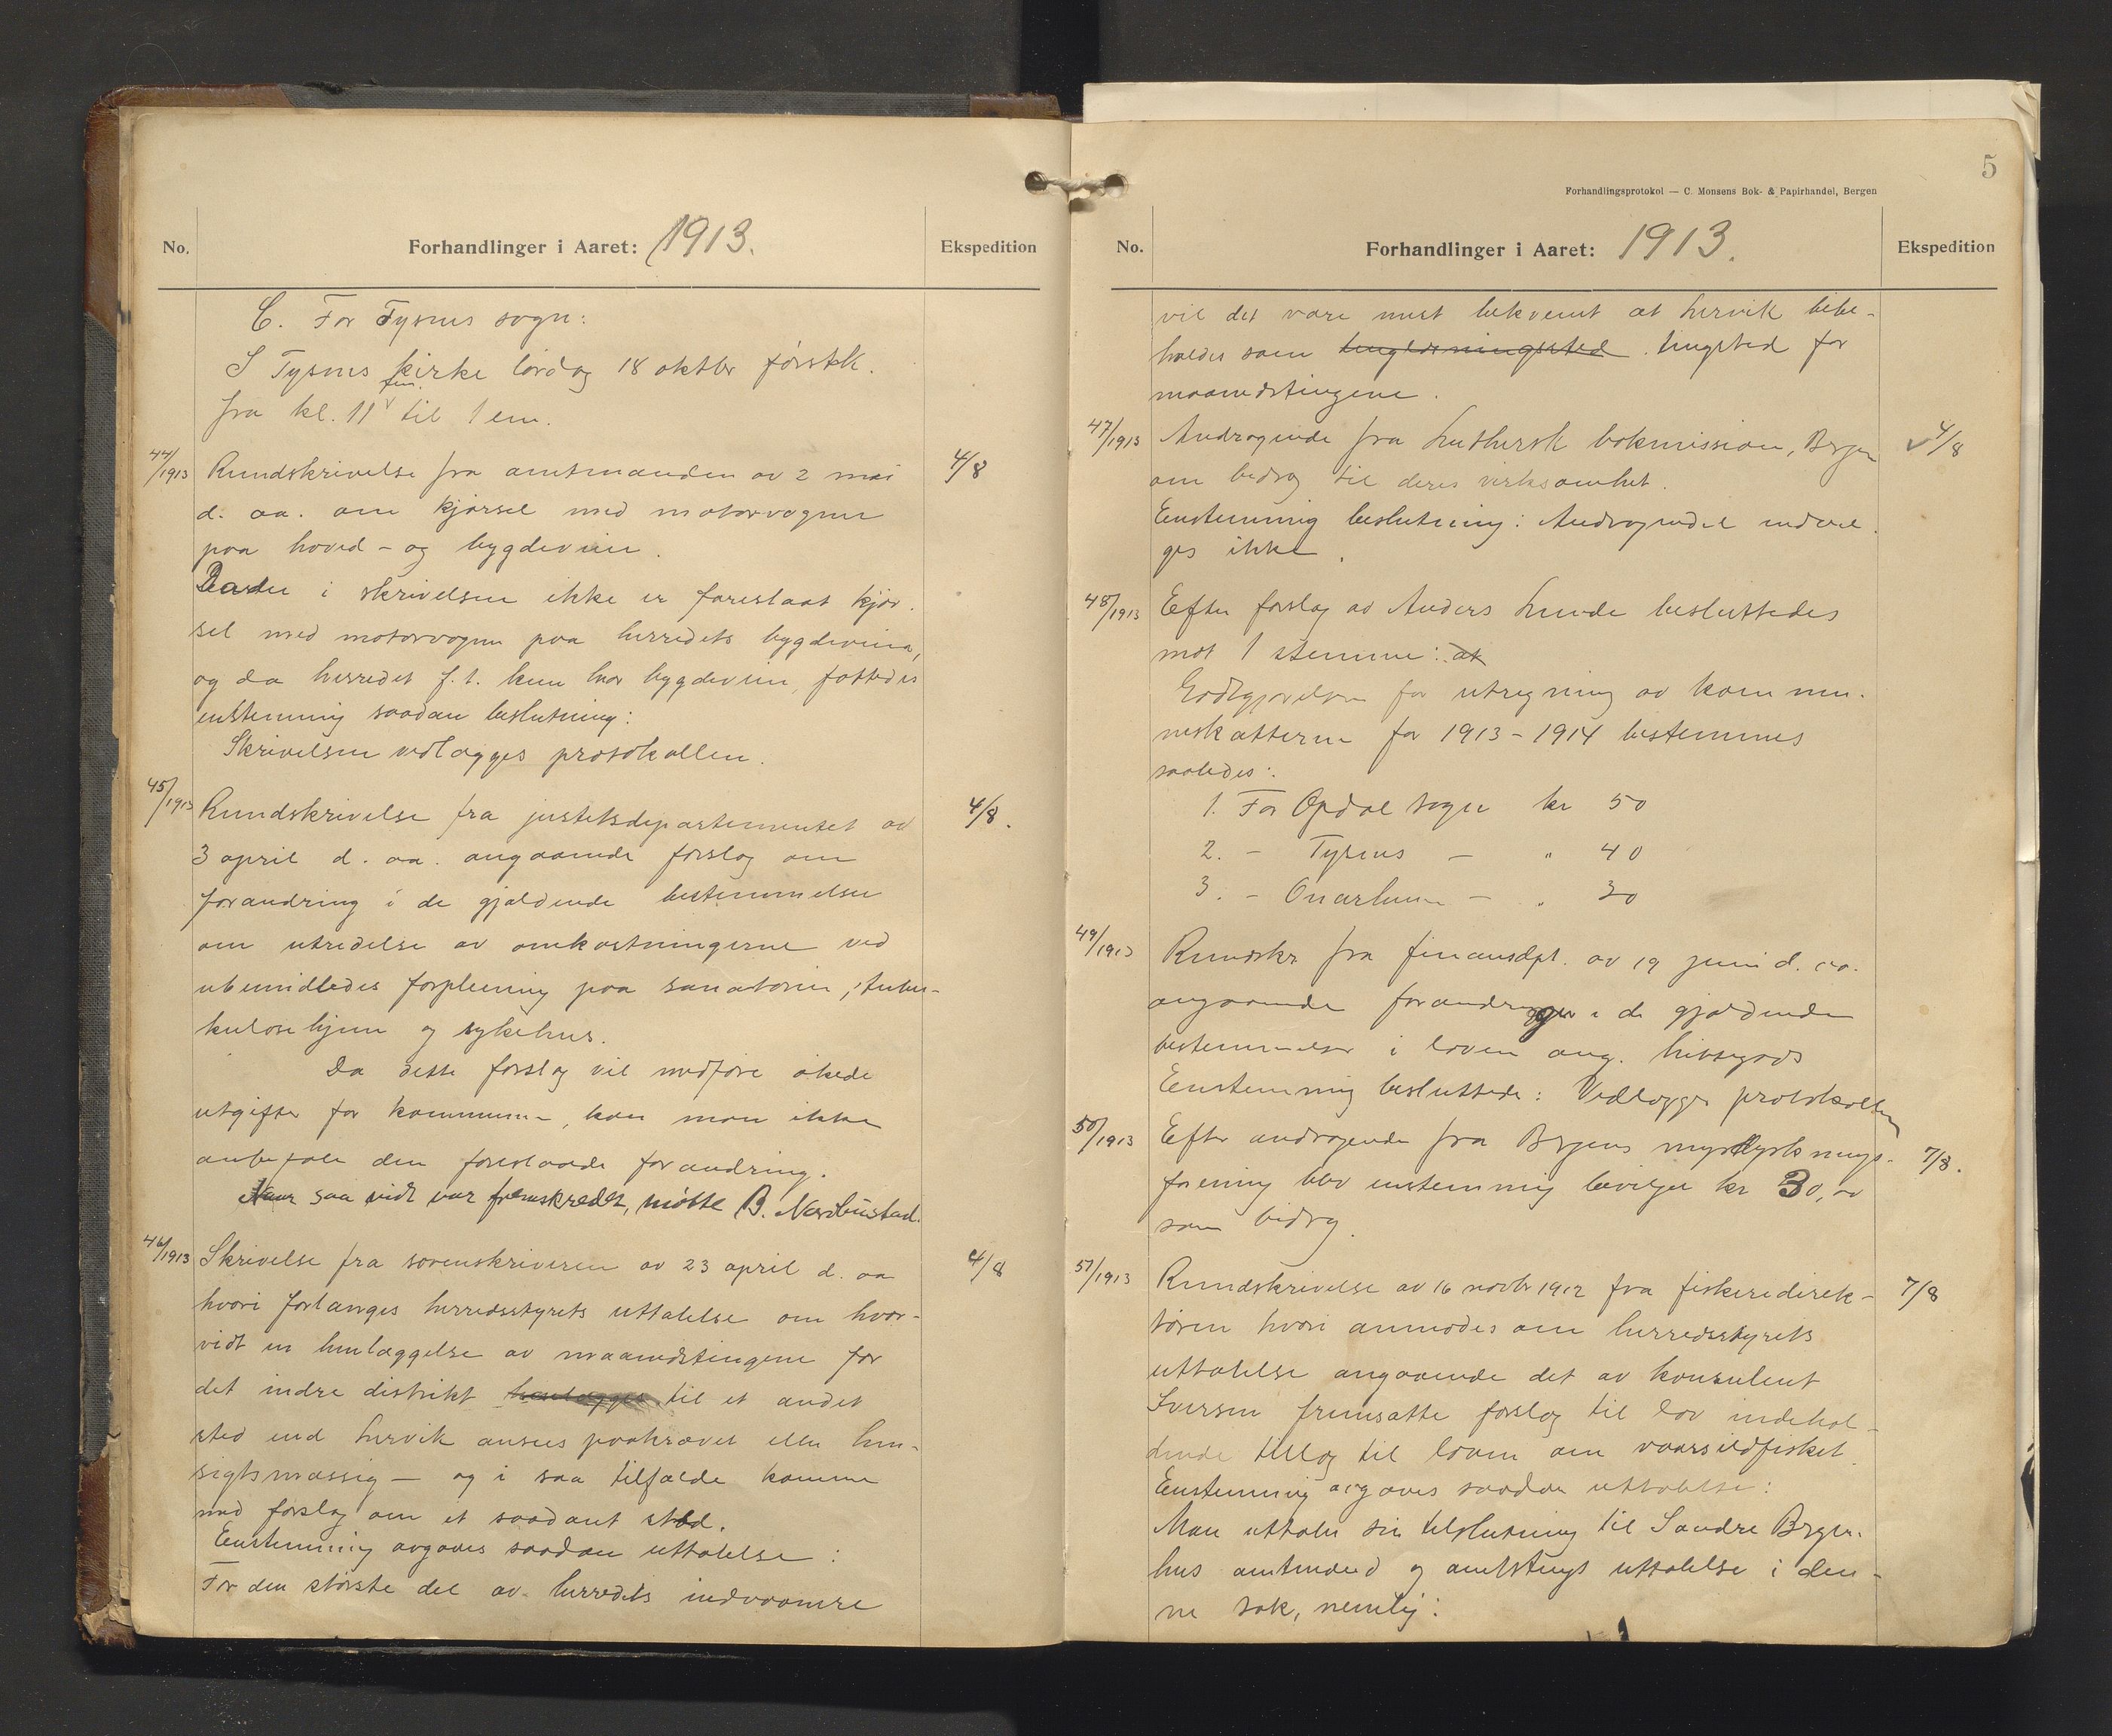 No.
Forhandlinger i Aaret: 1913.
Ekspedition
C. For Tysnes sogn:
I Tysnes kirke lördag 18 oktbr förstk.
fra kl. 11 fm. til 1 em.
44/1913 Rundskrivelse fra amtmanden av 2 mai 4/8
d. aa. om kjörsel med motorvogner
paa hoved- og bygdeveier.
Da der i skrivelsen ikke er foreslaat kjör-
sel med motorvogner paa herredets bygdeveier,
og da herredet f. t. kun har bygdeveier, fattedes
enstemmig saadan beslutning:
Skrivelsen vedlægges protokollen.
45/1913 Rundskrivelse fra justitsdepartementet av 4/8.
3 april d. aa. angaaende forslag om
forandring i de gjældende bestemmelser
om utredelse av omkostningerne ved
ubemidledes forpleining paa sanatorier, tuber-
kulosehjem og sykehus.
Da dette forslag vil medföre ökede
utgifter for kommunen, kan man ikke
anbefale den foreslaaede forandring.
Naar saa vidt var fremskredet, mötte B. Nordbustad.
46/1913 Skrivelse fra sorenskriveren av 23 april d. aa 4/8
hvori forlanges herredsstyrets uttalelse om hvor-
vidt en henlæggelse av maanedstingene for
det indre distrikt henlægges til et andet
sted end Lervik ansees paakrævet eller hen-
sigtsmæssig — og i saa tilfælde komme
med forslag om et saadant sted.
Enstemmig avgaves saadan uttalelse:
For den störste del av herredets indvaanere
5
Forhandlingsprotokol — C. Monsens Bok- & Papirhandel, Bergen
No.
Forhandlinger i Aaret: 1913.
Ekspedition
vil det være mest bekvemt at Lervik bibe-
holdes som tingsted for
maanedstingene.
47/1913 Andragende fra Luthersk bokmission, Bergen 4/8
om bidrag til deres virksomhet.
Enstemmig beslutning: Andragendet indvil-
ges ikke.
48/1913 Efter forslag av Anders Lunde besluttedes
mot 1 stemme: at
Godtgjörelsen for utregning av kommu-
neskatterne for 1913-1914 bestemmes
saaledes:
1. For Opdal sogn kr 50
2. - Tysnes — " 40
3. - Onarheim — " 30
49/1913 Rundskr fra finansdpt. av 19 juni d. aa.
angaaende forandringer i de gjældende
bestemmelser i loven ang. hittegods
Enstemmig besluttede: Vedlægges protokollen
50/1913 Efter andragende fra Bergens myrdyrknings- 7/8.
forening blev enstemmig bevilget kr 30,00
som bidrag.
51/1913 Rundskrivelse av 16 novbr 1912 fra fiskeridirek- 7/8
tören hvori anmodes om herredsstyrets
uttalelse angaaende det av konsulent
Iversen fremsatte forslag til lov indehol-
dende tillæg til loven om vaarsildfisket.
Enstemmig avgaves saadan uttalelse:
Man uttaler sin tilslutning til Söndre Bergen-
hus amtmænd og amtstings uttalelse i den-
ne sak, nemlig: